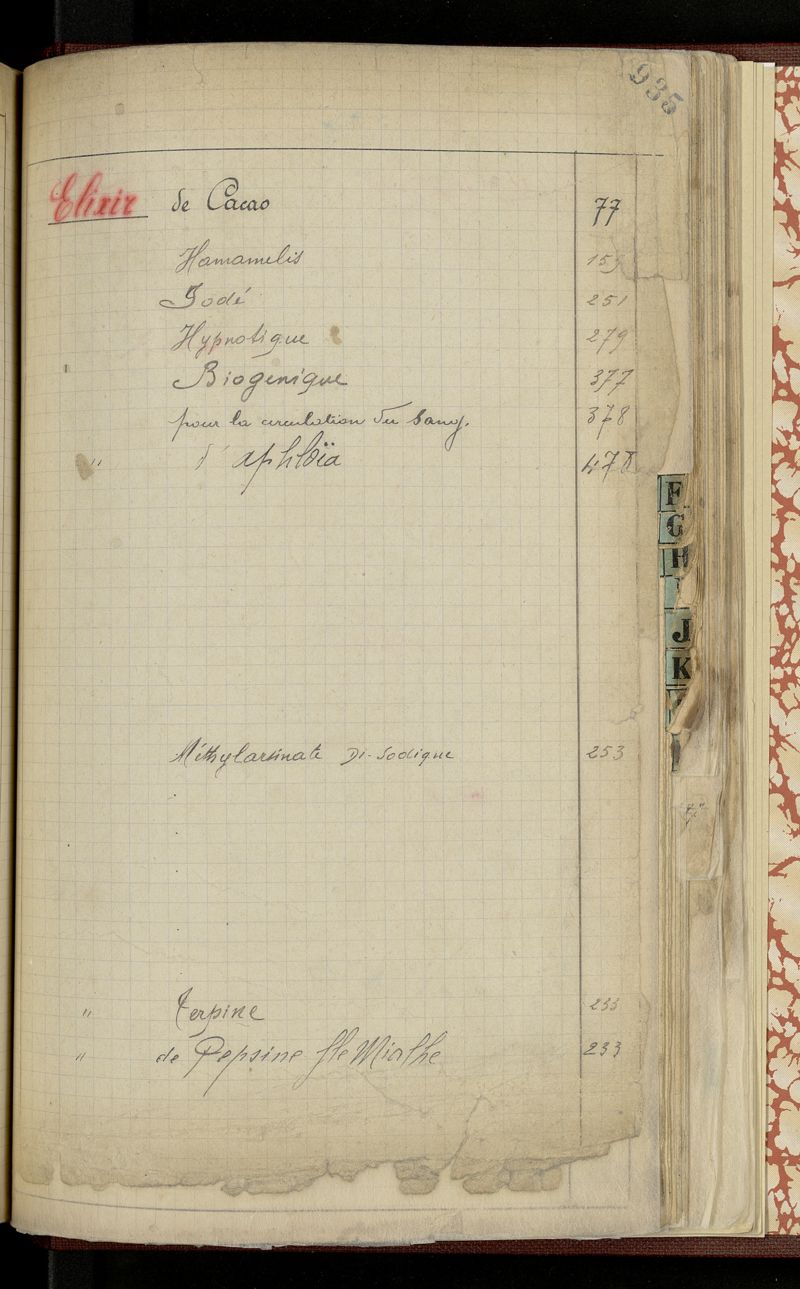 935
Elixir de Cacao 77
Hamamelis 159
Iodé 251
Hypnotique 279
Biogenique 377
pour la circulation du Sang. 378
" d'aphloïa 478
F
G
H
I
J
K
Méthylarsinate Di-Sodique 253
" Terpine 233
" de Pepsine Mialhe 233